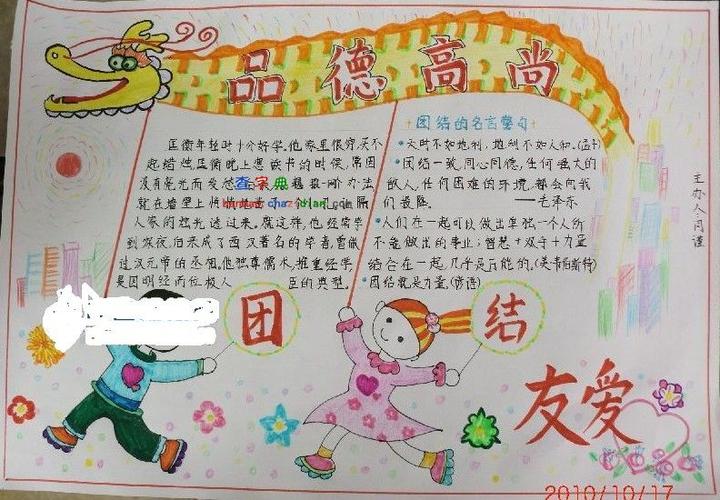 品德高尚
匡衡年轻时十分好学。他家里很穷，买不
起蜡烛，匡衡晚上想读书的时候，常因
没有亮光而发愁
办法，
就在墙上
隔
人家的烛光透过来。就这样，他经常学
到深夜，后来成了西汉著名的学者，曾做
过汉元帝的丞相。他独尊儒术，推重经学，
是因明经而位极人 臣的典型。
查字典
chazidian.com
团结的名言警句
天时不如地利，地利不如人和。(孟子)
团结一致，同心同德，任何强大的
敌人，任何困难的环境，都会向我
们投降。 ——毛泽东
人们在一起可以做出单独一个人所
不能做出的事业；智慧+双手+力量
结合在一起，几乎是万能的。(美·韦伯斯特)
团结就是力量。(谚语)
团
结
友爱
主办人：闫谨
2010/10/17